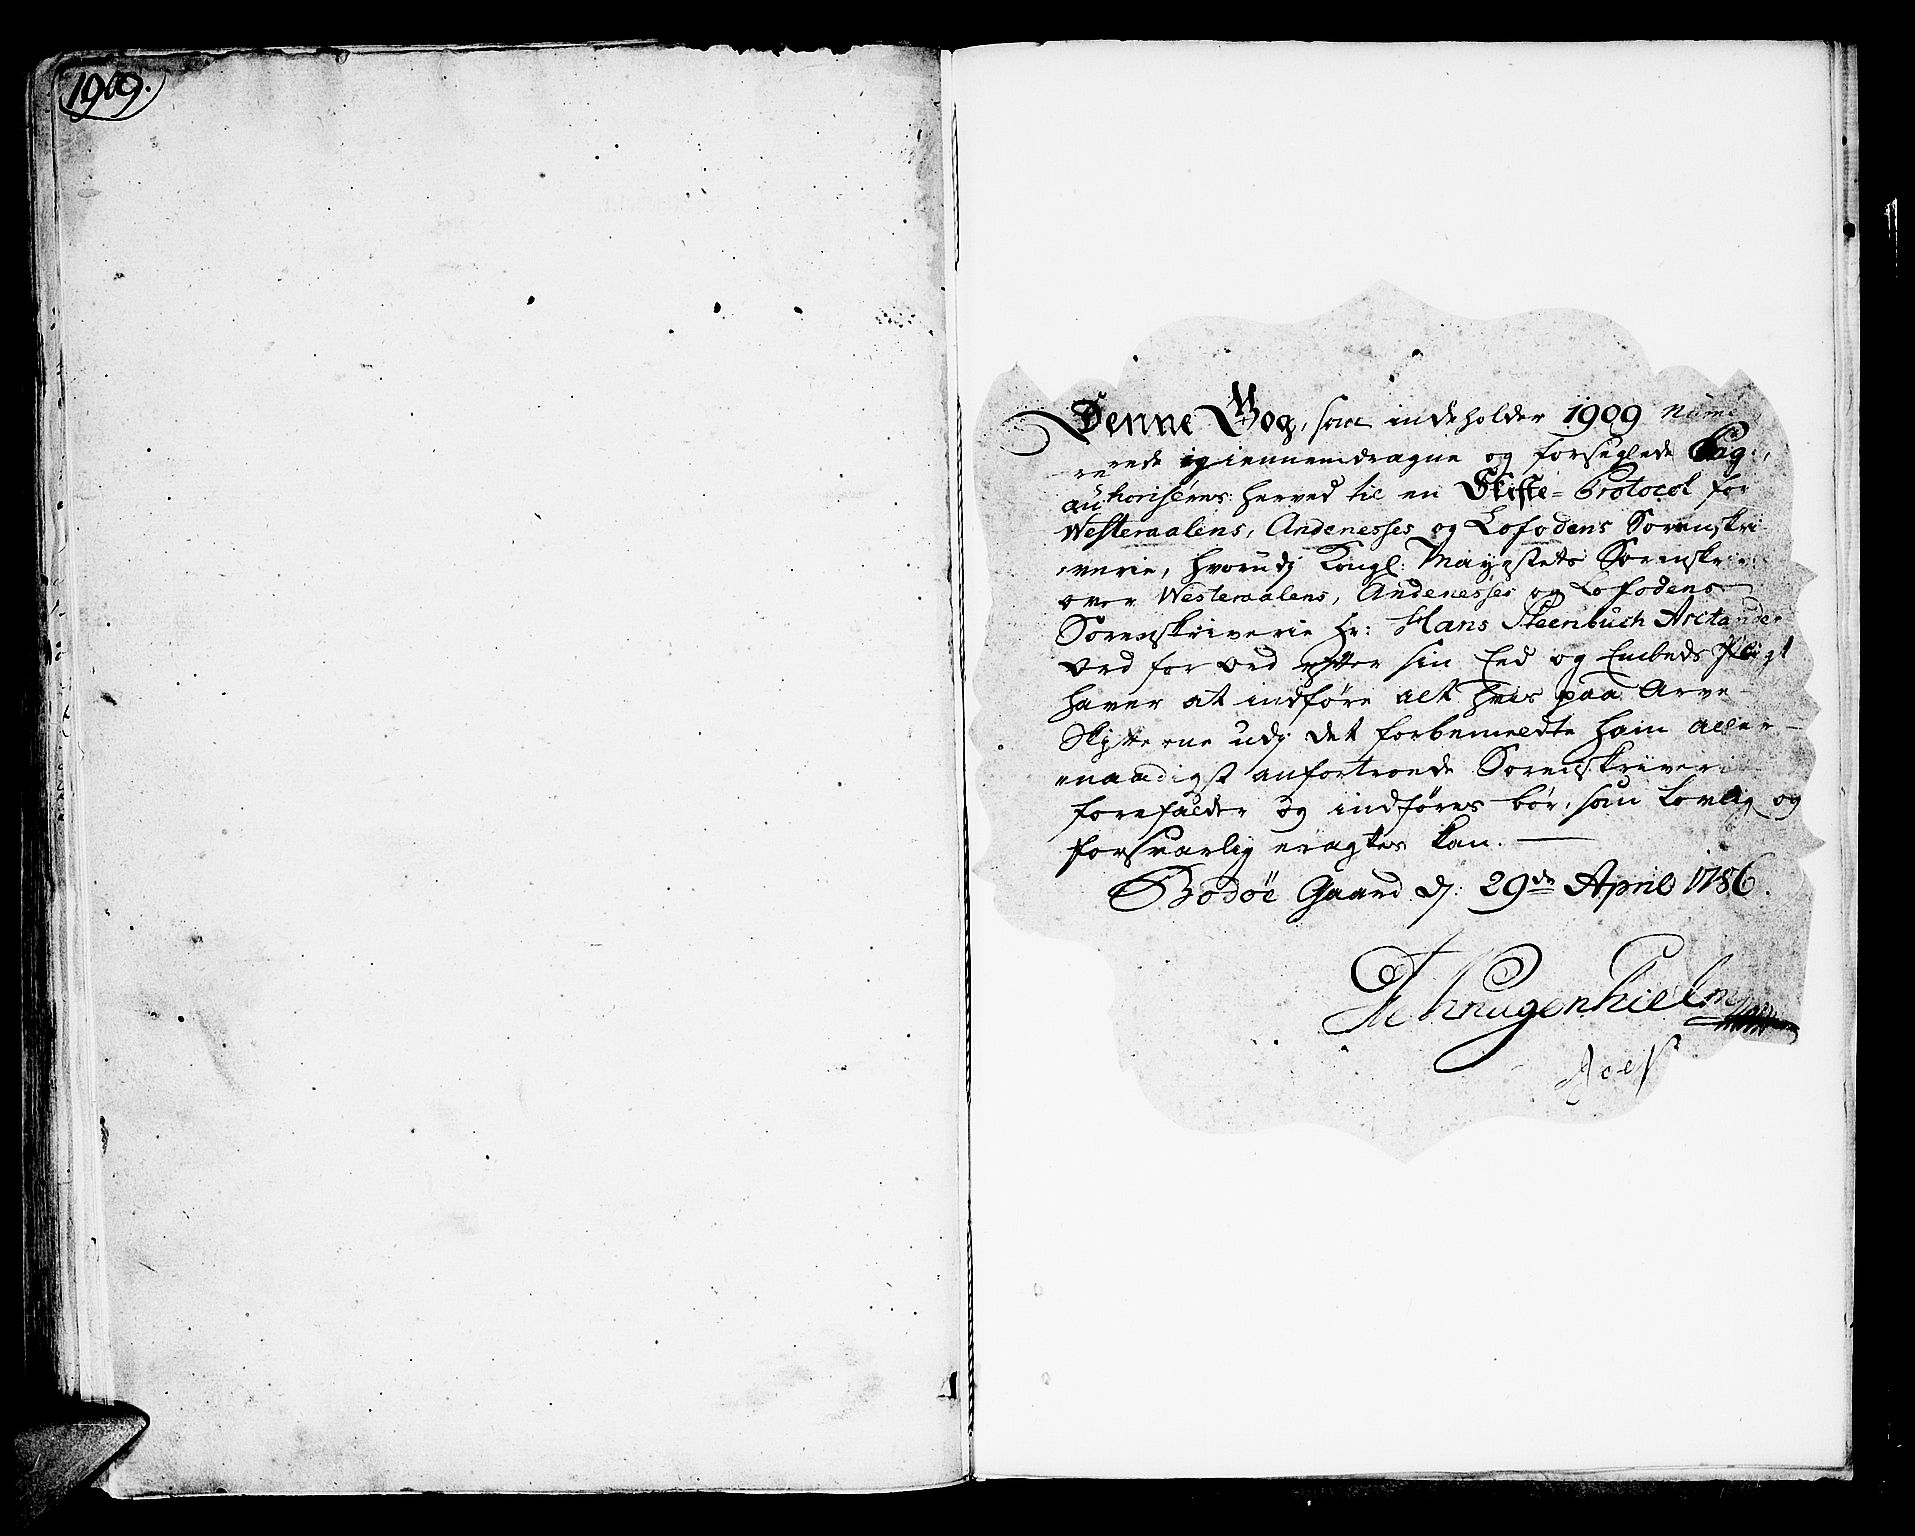 1909.
Denne Bog, som indeholder 1909 nume
rerede igiennemdragne og forseglede Pag:,
authoriseres herved til en Skifte-Protocol for
Westeraalens, Andenesses og Lofodens Sorenskri
verie, hvorudj Kongl: Mayestets Sorenskriver
over Westeraalens, Andenesses og Lofodens
Sorenskriverie Hr: Hans Steenbuch Arctander
Ord for Ord efter sin Eed og Embeds Pligt
haver at indføre alt hvis paa Arve-
Skifterne udj det forbemeldte ham aller-
naadigst anfortroede Sorenskriverie
forefalder og indføres bør, som Lovlig og
forsvarlig eragtes kan.
Bodøe Gaard dj: 29de April 1786.
Knagenhielm